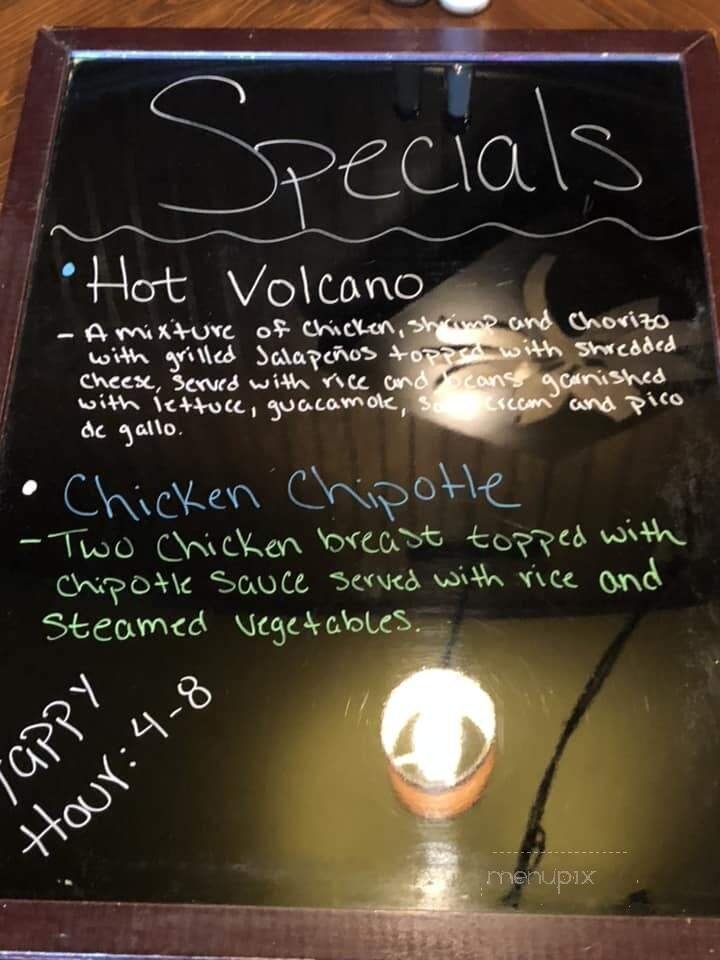 Specials
• Hot Volcano
- A mixture of chicken, shrimp and Chorizo
with grilled Jalapeños topped with shredded
cheese, served with rice and beans garnished
with lettuce, guacamole, sour cream and pico
de gallo.
• Chicken Chipotle
- Two Chicken breast topped with
chipotle sauce served with rice and
steamed vegetables.
Happy
Hour: 4-8
menupix